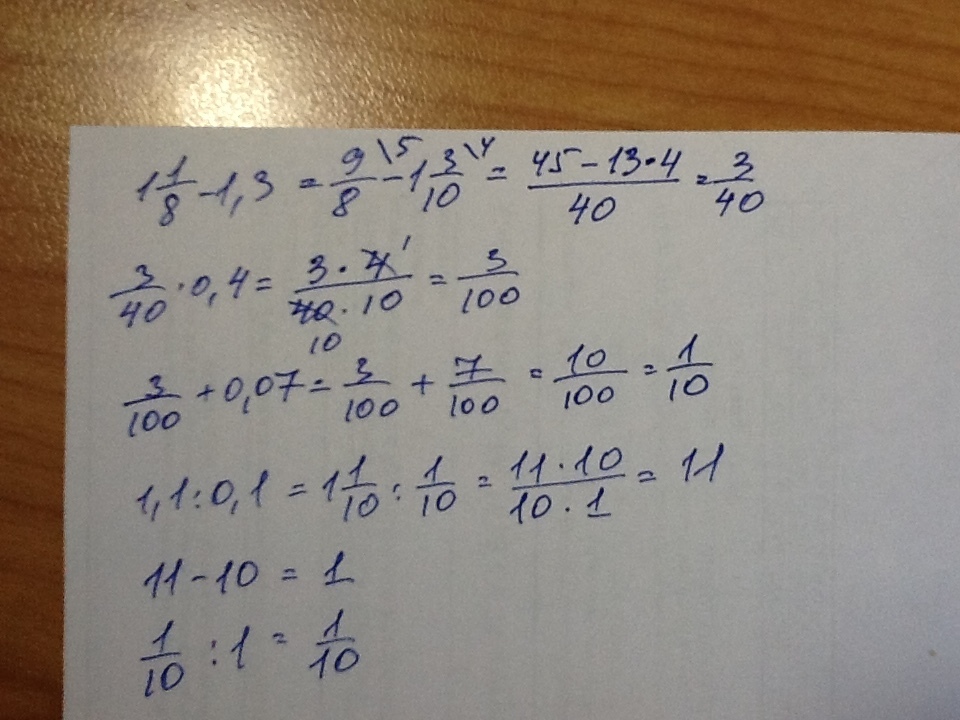 1 1/8 - 1,3 = 9/8 \5 - 1 3/10 \4 = (45 - 13·4)/40 = 3/40
3/40 · 0,4 = (3 · 4 1)/(40 10 · 10) = 3/100
3/100 + 0,07 = 3/100 + 7/100 = 10/100 = 1/10
1,1 : 0,1 = 1 1/10 : 1/10 = (11 · 10)/(10 · 1) = 11
11 - 10 = 1
1/10 : 1 = 1/10